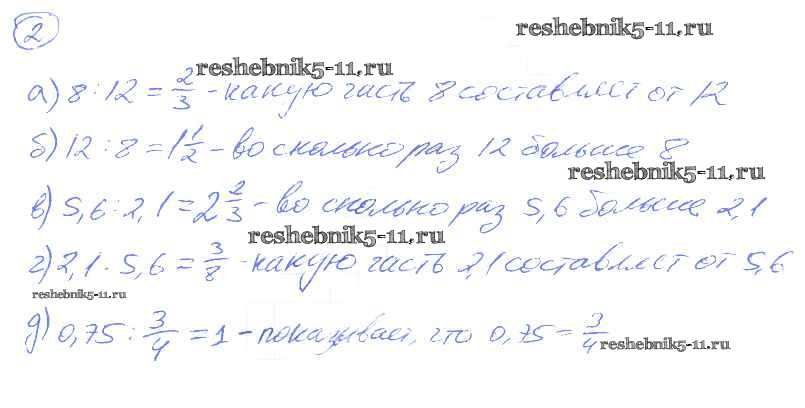 2
reshebnik5-11.ru
reshebnik5-11.ru
а) 8 : 12 = 2/3 - какую часть 8 составляет от 12
б) 12 : 8 = 1 1/2 - во сколько раз 12 больше 8
reshebnik5-11.ru
в) 5,6 : 2,1 = 2 2/3 - во сколько раз 5,6 больше 2,1
reshebnik5-11.ru
г) 2,1 : 5,6 = 3/8 - какую часть 2,1 составляет от 5,6
reshebnik5-11.ru
д) 0,75 : 3/4 = 1 - показывает, что 0,75 = 3/4
reshebnik5-11.ru